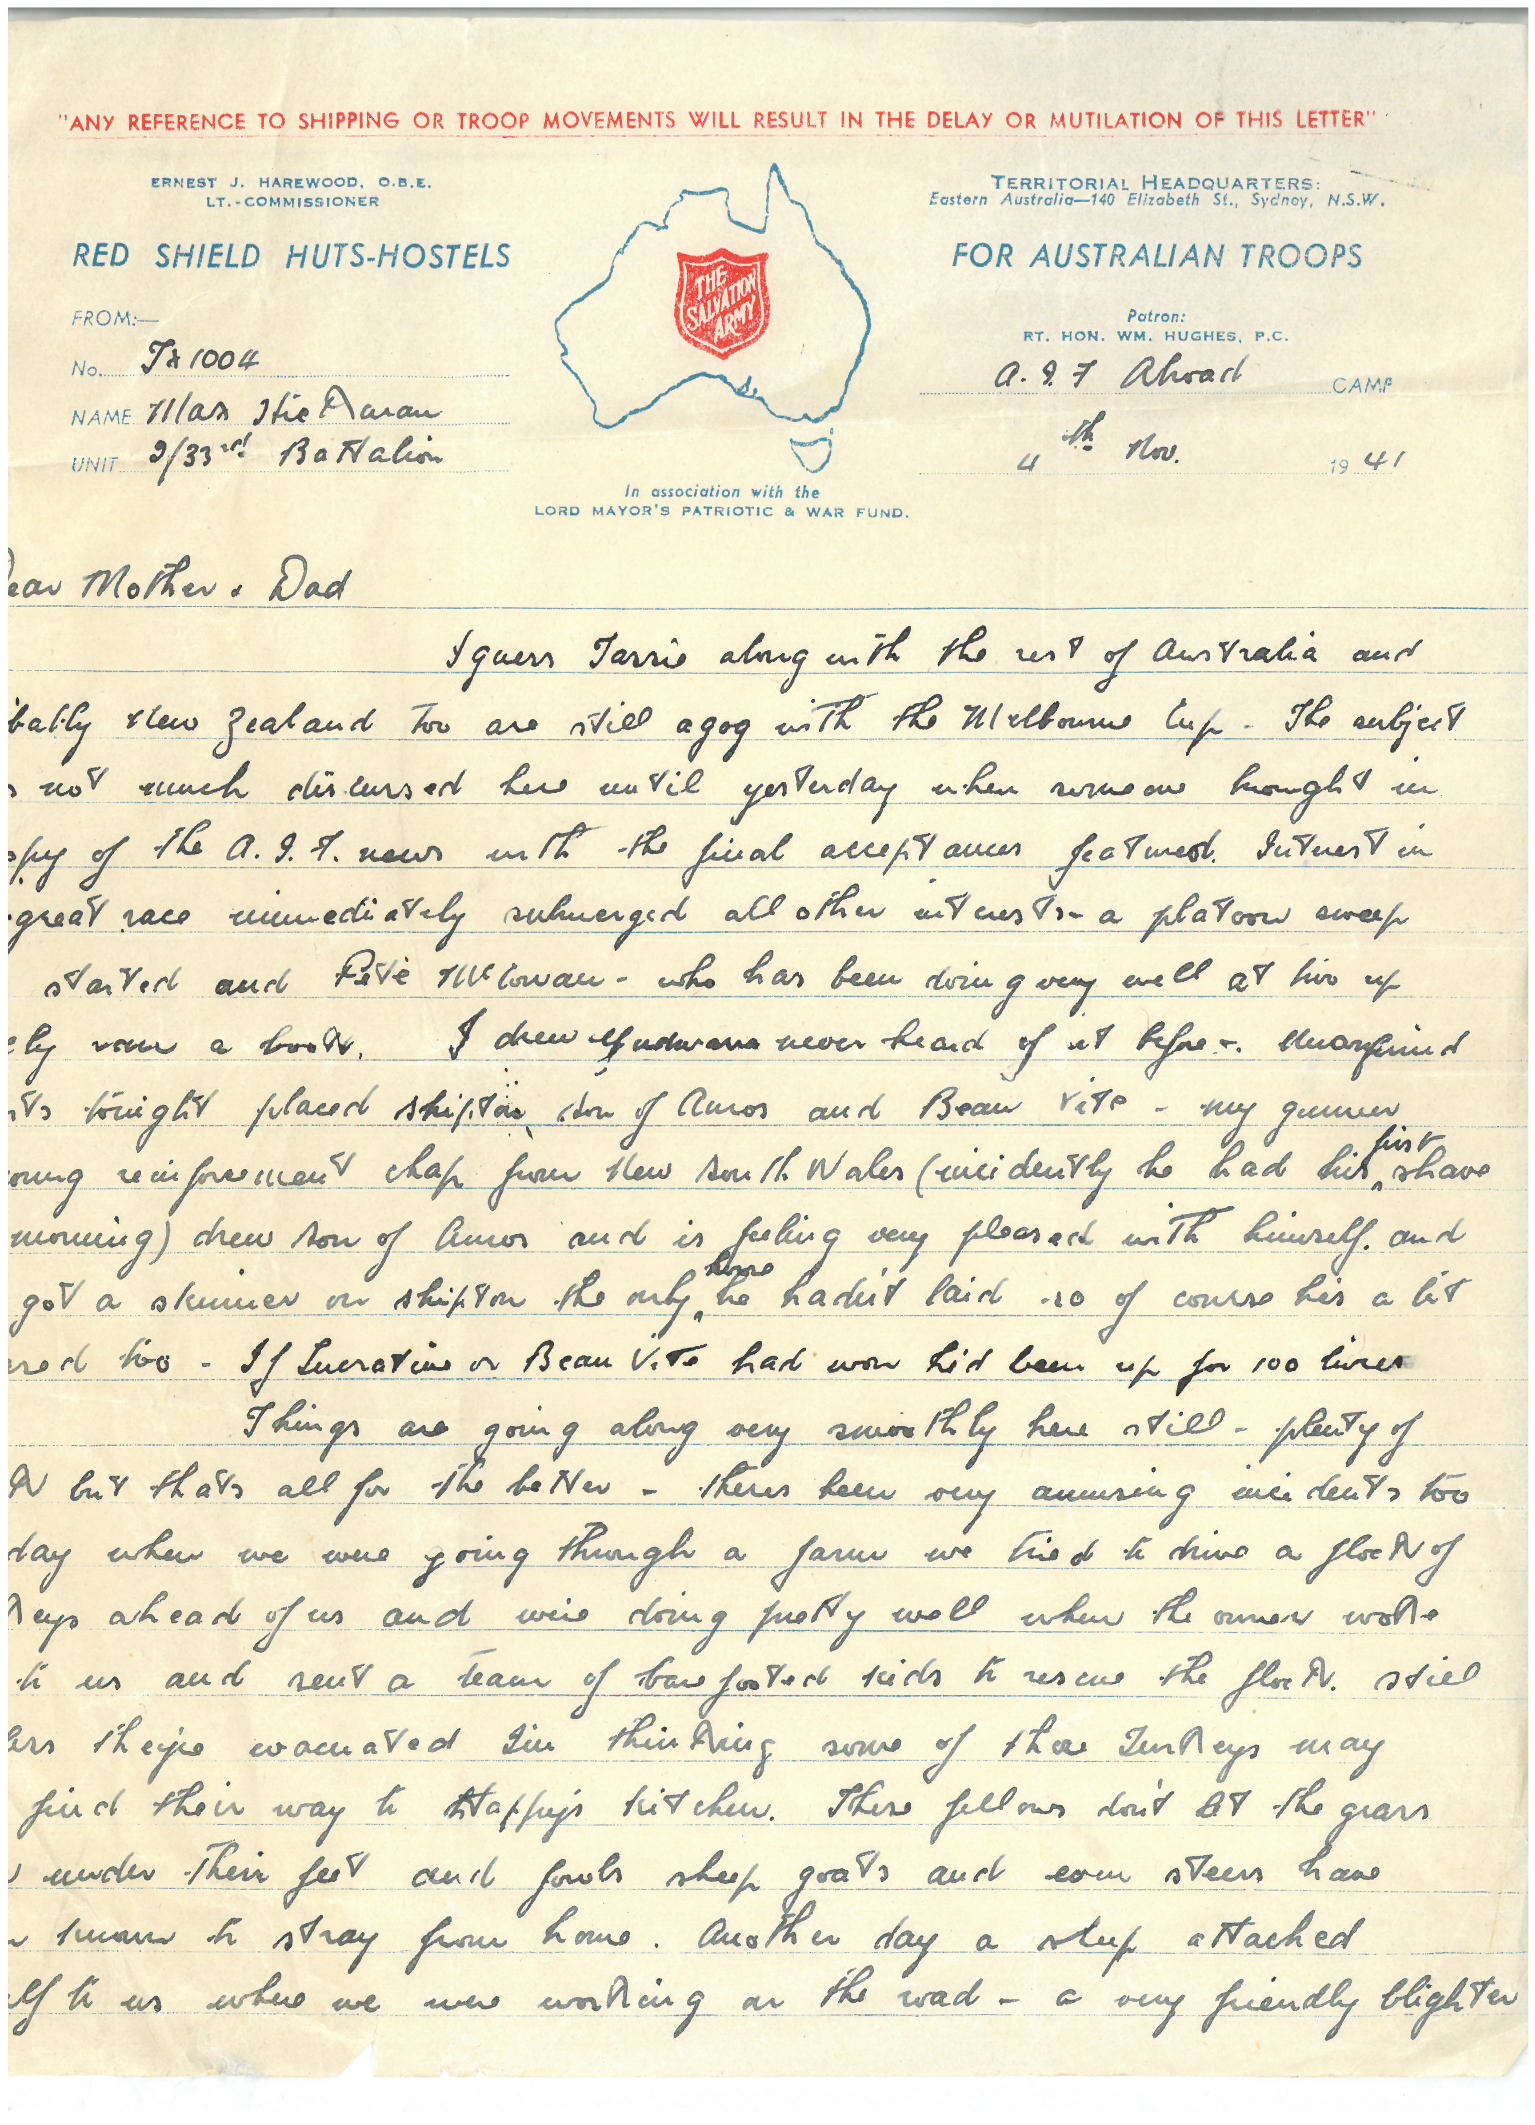 "ANY REFERENCE TO SHIPPING OR TROOP MOVEMENTS WILL RESULT IN THE DELAY OR MUTILATION OF THIS LETTER"
ERNEST J. HAREWOOD, O.B.E.
LT.-COMMISSIONER
TERRITORIAL HEADQUARTERS:
Eastern Australia—140 Elizabeth St., Sydney, N.S.W.
RED SHIELD HUTS-HOSTELS
THE
SALVATION
ARMY
FOR AUSTRALIAN TROOPS
FROM:—
Patron:
RT. HON. WM. HUGHES, P.C.
No. TX1004
A.I.F Abroad CAMP
NAME Max
UNIT 2/33rd Battalion
4th Nov. 1941
In association with the
LORD MAYOR'S PATRIOTIC & WAR FUND.
ear Mother & Dad
I guess Tassie along with the rest of Australia and
bably New Zealand too are still agog with the Melbourne Cup - The subject
s not much discussed here until yesterday when someone brought in
opy of the A.I.F. news with the final acceptances featured. Interest in
great race immediately submerged all other interests - a platoon sweep
started and Pete McCowan - who has been doing very well at two up
ely ran a book. I drew never heard of it before -.
ts tonight placed Skipton, Son of Auros and Beau Vite - my gunner
oung reinforcement chap from New South Wales (incidently he had his first shave
morning) drew Son of Auros and is feeling very pleased with himself. and
got a skinner on Skipton the only horse he hadn't laid so of course his a bit
sed too - If Lucrative or Beau Vite had won he'd been up for 100 lires
Things are going along very smoothly here still - plenty of
k but thats all for the better - theres been very amusing incidents too
day when we were going through a farm we tried to drive a flock of
keys ahead of us and were doing pretty well when the owner woke
to us and sent a team of barefooted kids to rescue the flock. still
ess theyre evacuated I'm thinking some of those Turkeys may
find their way to Happy's kitchen. These fellows don't let the grass
w under their feet and fowls sheep goats and even steers have
n known to stray from home. Another day a sheep attached
elf to us where we were working on the road - a very friendly blighter